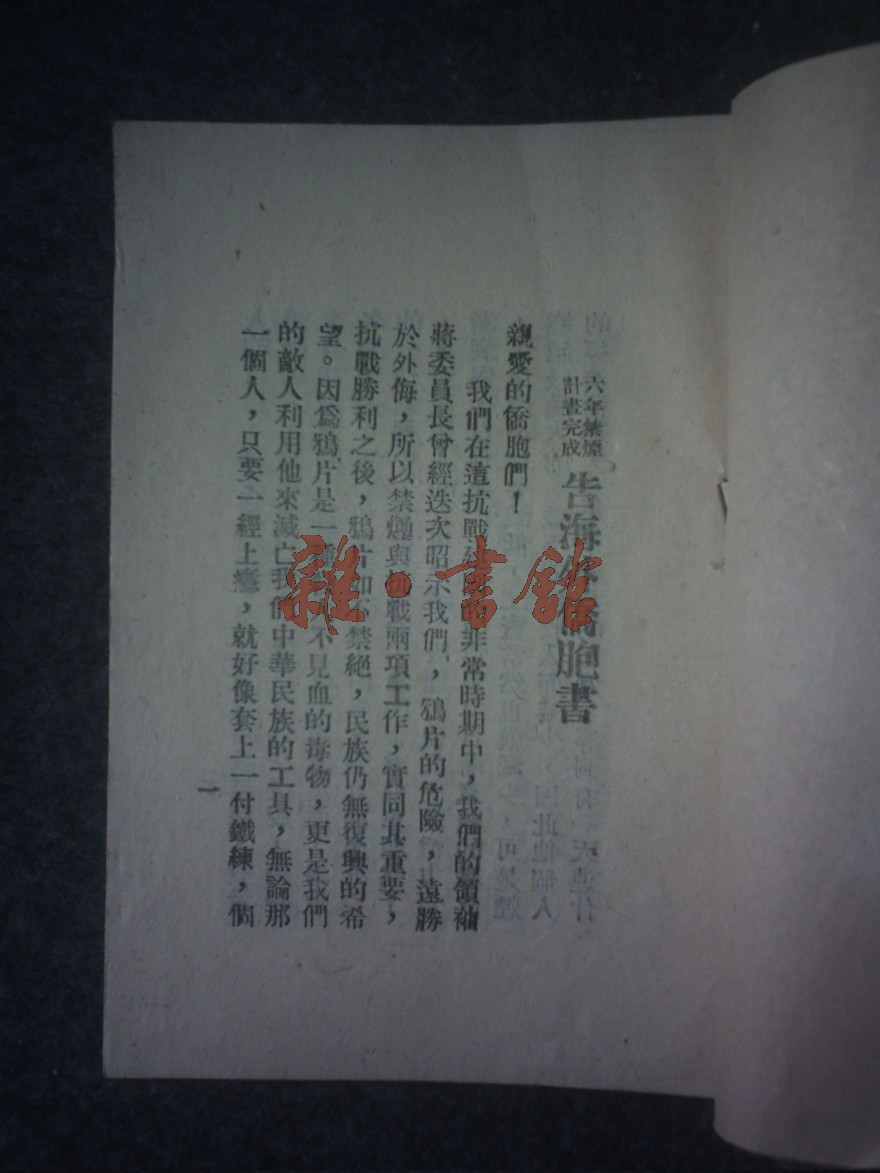 六年禁煙
計畫完成
告海外僑胞書
親愛的僑胞們！
我們在這抗戰建國的非常時期中，我們的領袖
蔣委員長曾經迭次昭示我們，鴉片的危險，遠勝
於外侮，所以禁煙與抗戰兩項工作，實同其重要，
抗戰勝利之後，鴉片如不禁絕，民族仍無復興的希
望。因爲鴉片是一種不見血的毒物，更是我們
的敵人利用他來滅亡我們中華民族的工具，無論那
一個人，只要一經上癮，就好像套上一付鐵練，個
一
雜·書館